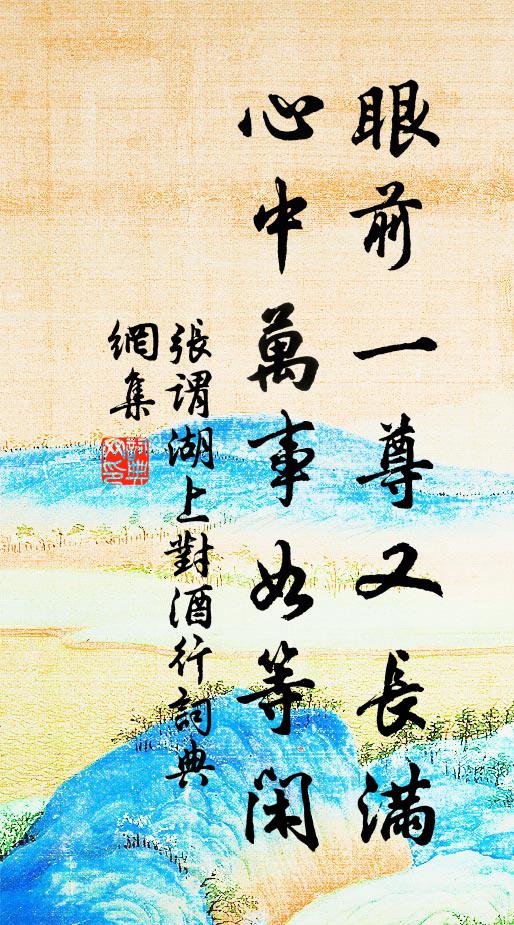 眼前一尊又長滿
心中萬事如等閑
張謂湖上對酒行詞典
網集